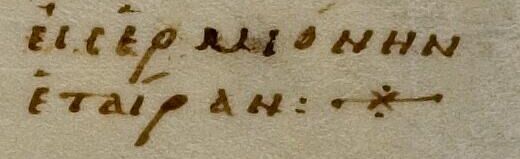 εἰς ἑρμιόνην
ἑταίραν: